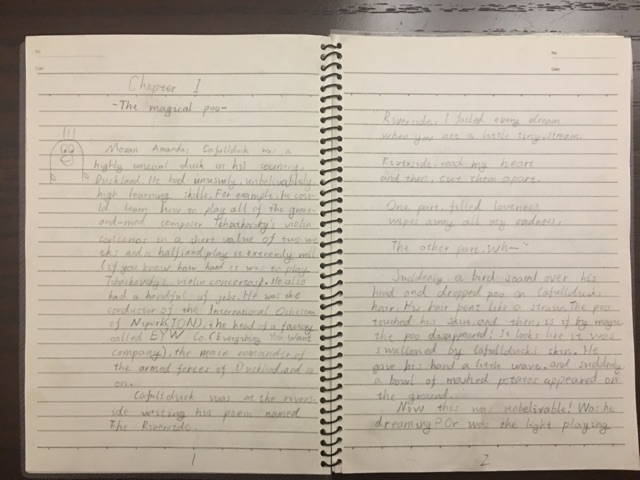 Chapter 1
-The magical poo-
Mozan Amandas Cafullduck was a
highly unusual duck in his country,
Duckland. He had unusualy, unbelivablely
high learning skills. For example, he cou-
ld learn how to play all of the
and-mad composer Tchaikovsky's violin
concertos in a short value of two we
eks and a half (and play is extremly well
(if you knew how hard is was to play
Tchaikovsky's violin concertos). He also
had a handful of jobs. He was the
conductor of the International Orchestra
of Nipork (ION), the head of a factory
called EYW Co. (Everything You Want
company), the main comander of
the armed forces of Duckland and so
on.
Cafullduck was at the rivers-
ide writing his poem named
The Riverside.
1
Riverside, I failed every dream
when you are a little tiny stream.
Riverside, read my heart
and then, cut them apart.
One part, filled loveness
wipes away all my sadness.
The other part, wh—
Suddenly a bird soard over his
head and dropped poo on Cafullducks
hair. His hair bent like a straw. The poo
touched his skin and then, as if by magic
the poo disappeared! It looks like it was
swallowed by Cafullducks skin. He
gave his hand a little wave, and suddenly
a bowl of mashed potatos appeared on
the ground.
Now this was unbelivable! Was he
dreaming? Or was the light playing
2